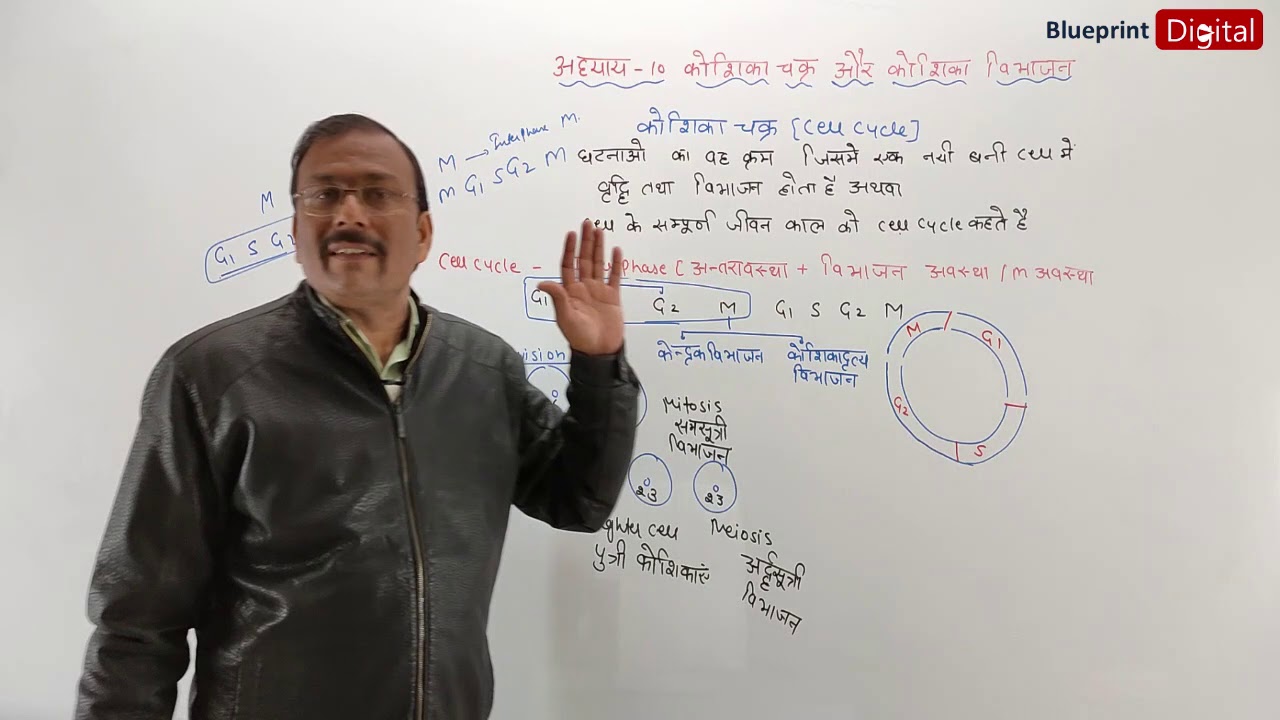 Blueprint Digital
अध्याय - 10 कोशिका चक्र और कोशिका विभाजन
कोशिका चक्र [Cell Cycle]
घटनाओ का वह क्रम जिसमे एक नयी बनी Cell में
वृद्धि तथा विभाजन होता है अथवा
के सम्पूर्ण जीवन काल को Cell Cycle कहते है
M → Interphase M.
M G1 S G2 M
M
G1 S G2
Cell Cycle - phase ( अन्तरावस्था + विभाजन अवस्था / M अवस्था
G1 G2 M G1 S G2 M
केन्द्रक विभाजन कोशिकाद्रव्य
विभाजन
Mitosis
समसूत्री
विभाजन
23 23
cell Meiosis
पुत्री कोशिकाएं अर्द्धसूत्री
विभाजन
M G1
G2 S